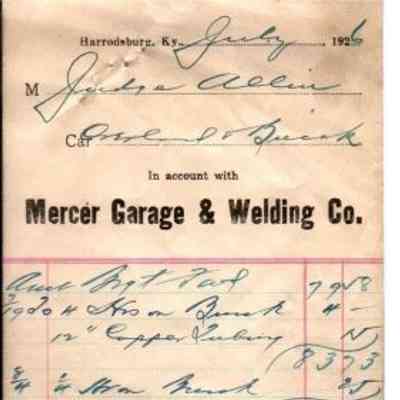 Harrodsburg, Ky. July 1926
M Judge Allin
Car Overland & Buick
In account with
Mercer Garage & Welding Co.
Amt Brgt Fwd 79 58
4 Hrs on Buick 4 -
12" Copper Tubing 15
83 73
Hr on Buick 25